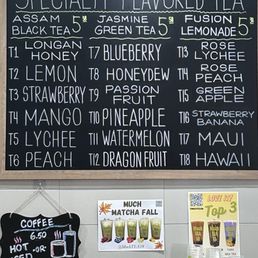 SPECIALTY FLAVORED TEA
ASSAM BLACK TEA 5
JASMINE GREEN TEA 5
FUSION LEMONADE 5
T1 LONGAN HONEY
T2 LEMON
T3 STRAWBERRY
T4 MANGO
T5 LYCHEE
T6 PEACH
T7 BLUEBERRY
T8 HONEYDEW
T9 PASSION FRUIT
T10 PINEAPPLE
T11 WATERMELON
T12 DRAGON FRUIT
T13 ROSE LYCHEE
T14 ROSE PEACH
T15 GREEN APPLE
T16 STRAWBERRY BANANA
T17 MAUI
T18 HAWAII
COFFEE
6.50
HOT -OR-
ICED
MUCH
MATCHA FALL
Top 3